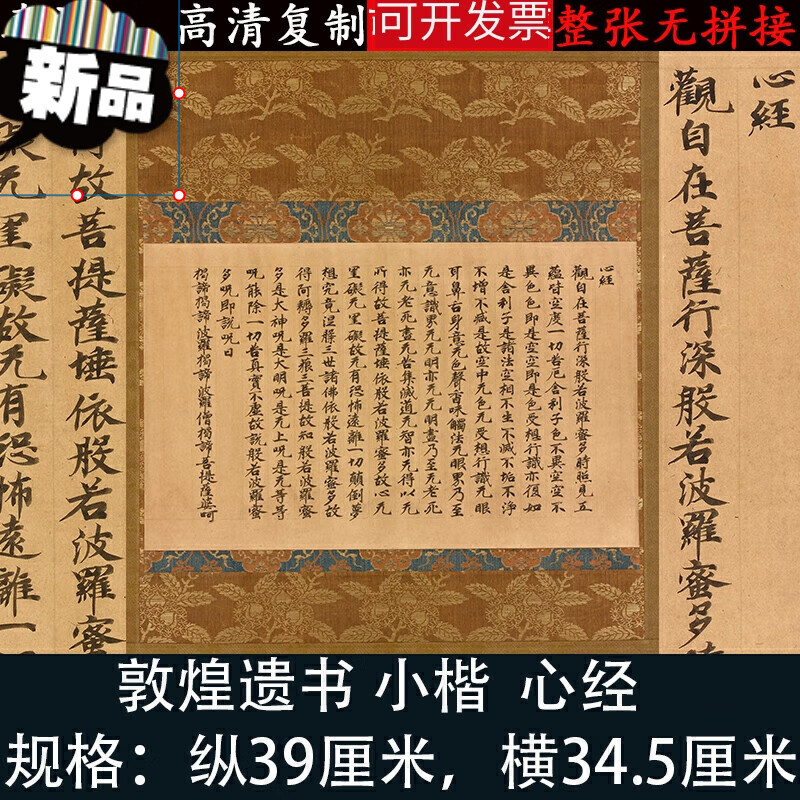 高清复制
可开发票
整张无拼接
新品
心經
觀自在菩薩行深般若波羅蜜多
心經
觀自在菩薩行深般若波羅蜜多時照見五
蘊皆空度一切苦厄舍利子色不異空空不
異色色即是空空即是色受想行識亦復如
是舍利子是諸法空相不生不滅不垢不淨
不增不減是故空中无色无受想行識无眼
耳鼻舌身意无色聲香味觸法无眼界乃至
无意識界无无明亦无无明盡乃至无老死
亦无老死盡无苦集滅道无智亦无得以无
所得故菩提薩埵依般若波羅蜜多故心无
罣礙无罣礙故无有恐怖遠離一切顛倒夢
想究竟涅槃三世諸佛依般若波羅蜜多故
得阿耨多羅三藐三菩提故知般若波羅蜜
多是大神呪是大明呪是无上呪是无等等
呪能除一切苦真實不虛故說般若波羅蜜
多呪即說呪曰
揭諦揭諦 波羅揭諦 波羅僧揭諦 菩提薩婆呵
故菩提薩埵依般若波羅蜜
无罣礙故无有恐怖遠離一
敦煌遗书 小楷 心经
规格：纵39厘米，横34.5厘米